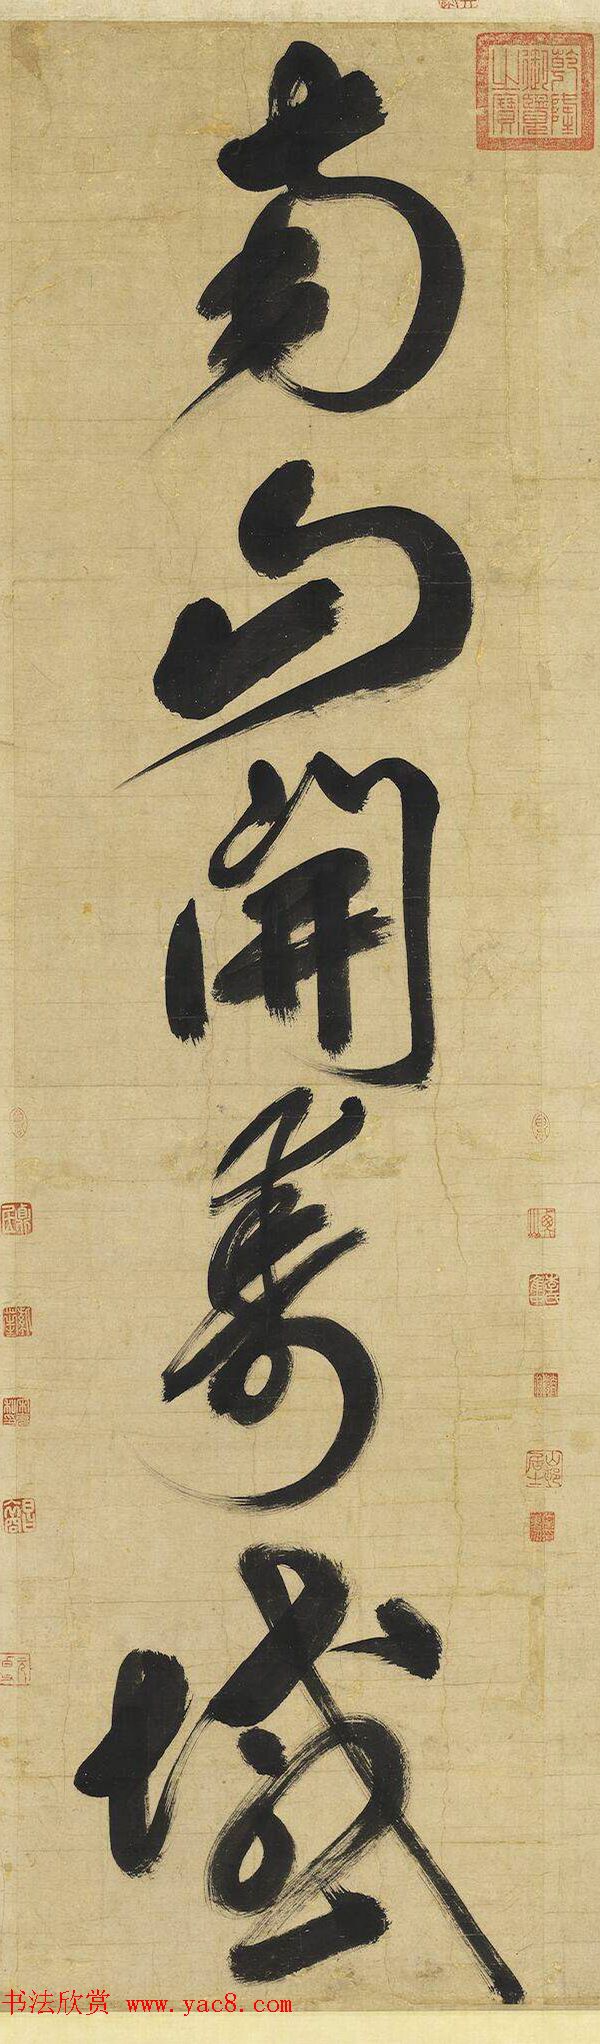 南山開壽域
乾隆御覽之寶
山邨居士
书法欣赏 www.yac8.com